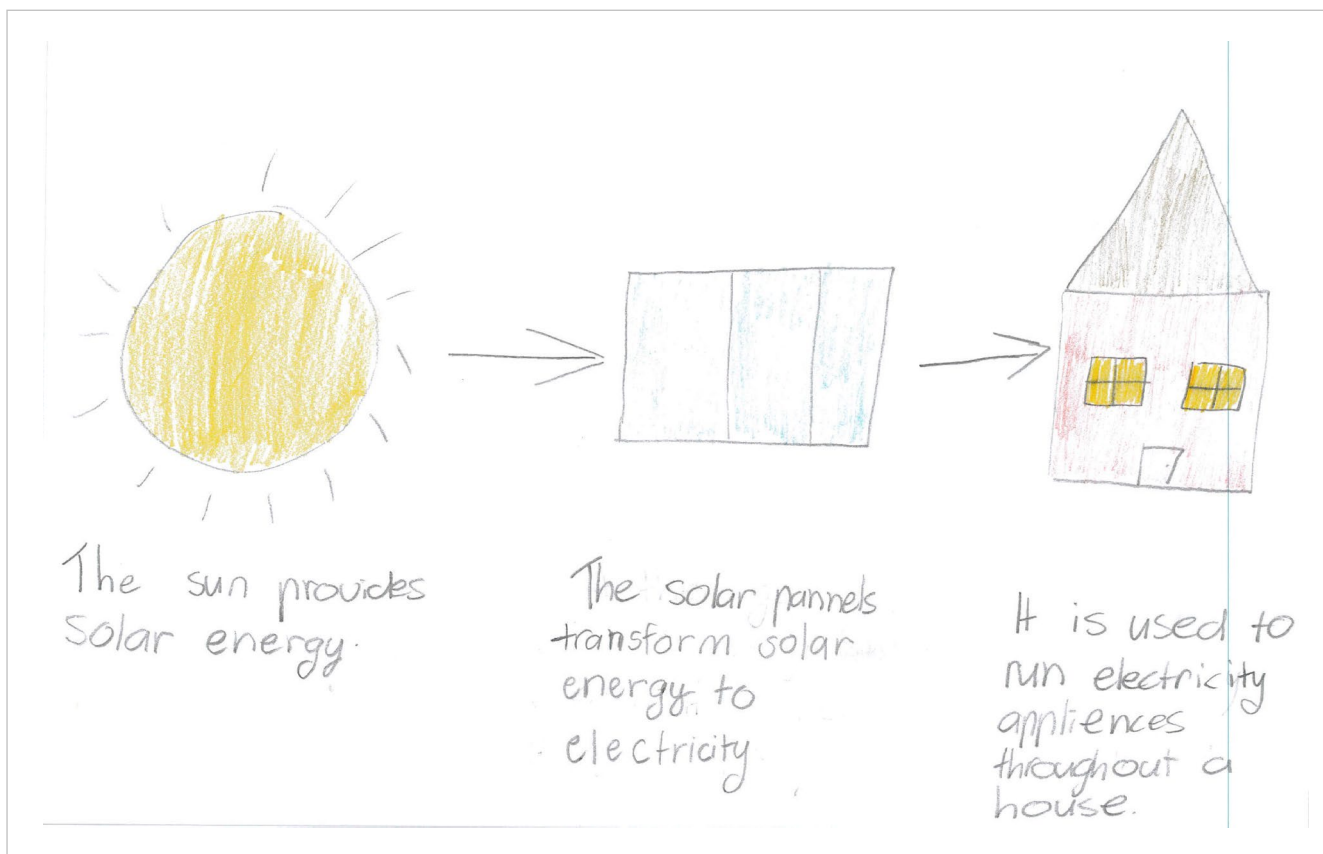 The sun provides
solar energy.
The solar pannels
transform solar
energy to
electricity
It is used to
run electricity
appliences
throughout a
house.